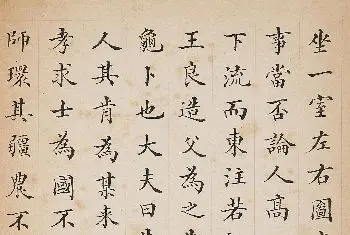 坐一室左右圖
事當否論人高
下流而東注若
王良造父為之
龜卜也大夫曰
人其肯為某來
孝求士為國不
師環其疆農不